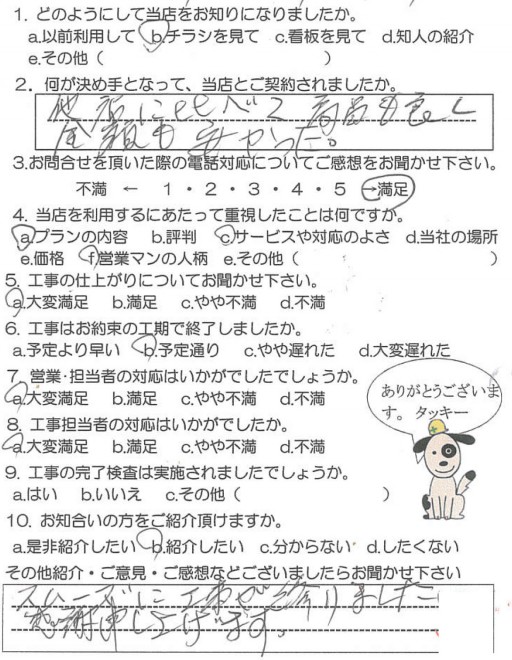 1. どのようにして当店をお知りになりましたか。
a.以前利用して b.チラシを見て c.看板を見て d.知人の紹介
e.その他（　　　　　）
2. 何が決め手となって、当店とご契約されましたか。
他店に比べて 商品も良く
金額も安かった。
3.お問合せを頂いた際の電話対応についてご感想をお聞かせ下さい。
不満 ← 1・2・3・4・5 →満足
4. 当店を利用するにあたって重視したことは何ですか。
a.プランの内容 b.評判 c.サービスや対応のよさ d.当社の場所
e.価格 f.営業マンの人柄 e.その他（　　　　　）
5. 工事の仕上がりについてお聞かせ下さい。
a.大変満足 b.満足 c.やや不満 d.不満
6. 工事はお約束の工期で終了しましたか。
a.予定より早い b.予定通り c.やや遅れた d.大変遅れた
7. 営業・担当者の対応はいかがでしたでしょうか。
a.大変満足 b.満足 c.やや不満 d.不満
ありがとうございま
す。 タッキー
8. 工事担当者の対応はいかがでしたか。
a.大変満足 b.満足 c.やや不満 d.不満
9. 工事の完了検査は実施されましたでしょうか。
a.はい b.いいえ c.その他（　　　　　）
10. お知合いの方をご紹介頂けますか。
a.是非紹介したい b.紹介したい c.分からない d.したくない
その他紹介・ご意見・ご感想などございましたらお聞かせ下さい
スムーズに工事が終りました
感謝申し上げます。